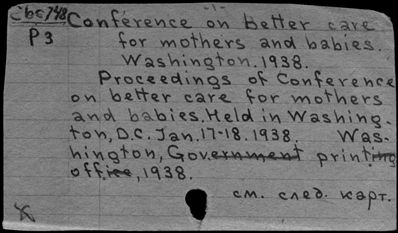 Cbc748 -1-
Conference on better care
P3 for mothers and babies.
Washington.1938.
Proceedings of Conference
on better care for mothers
and babies. Held in Washing-
ton, D.C. Jan. 17-18. 1938. Was-
hington, Government printing
office, 1938.
см. след. карт.